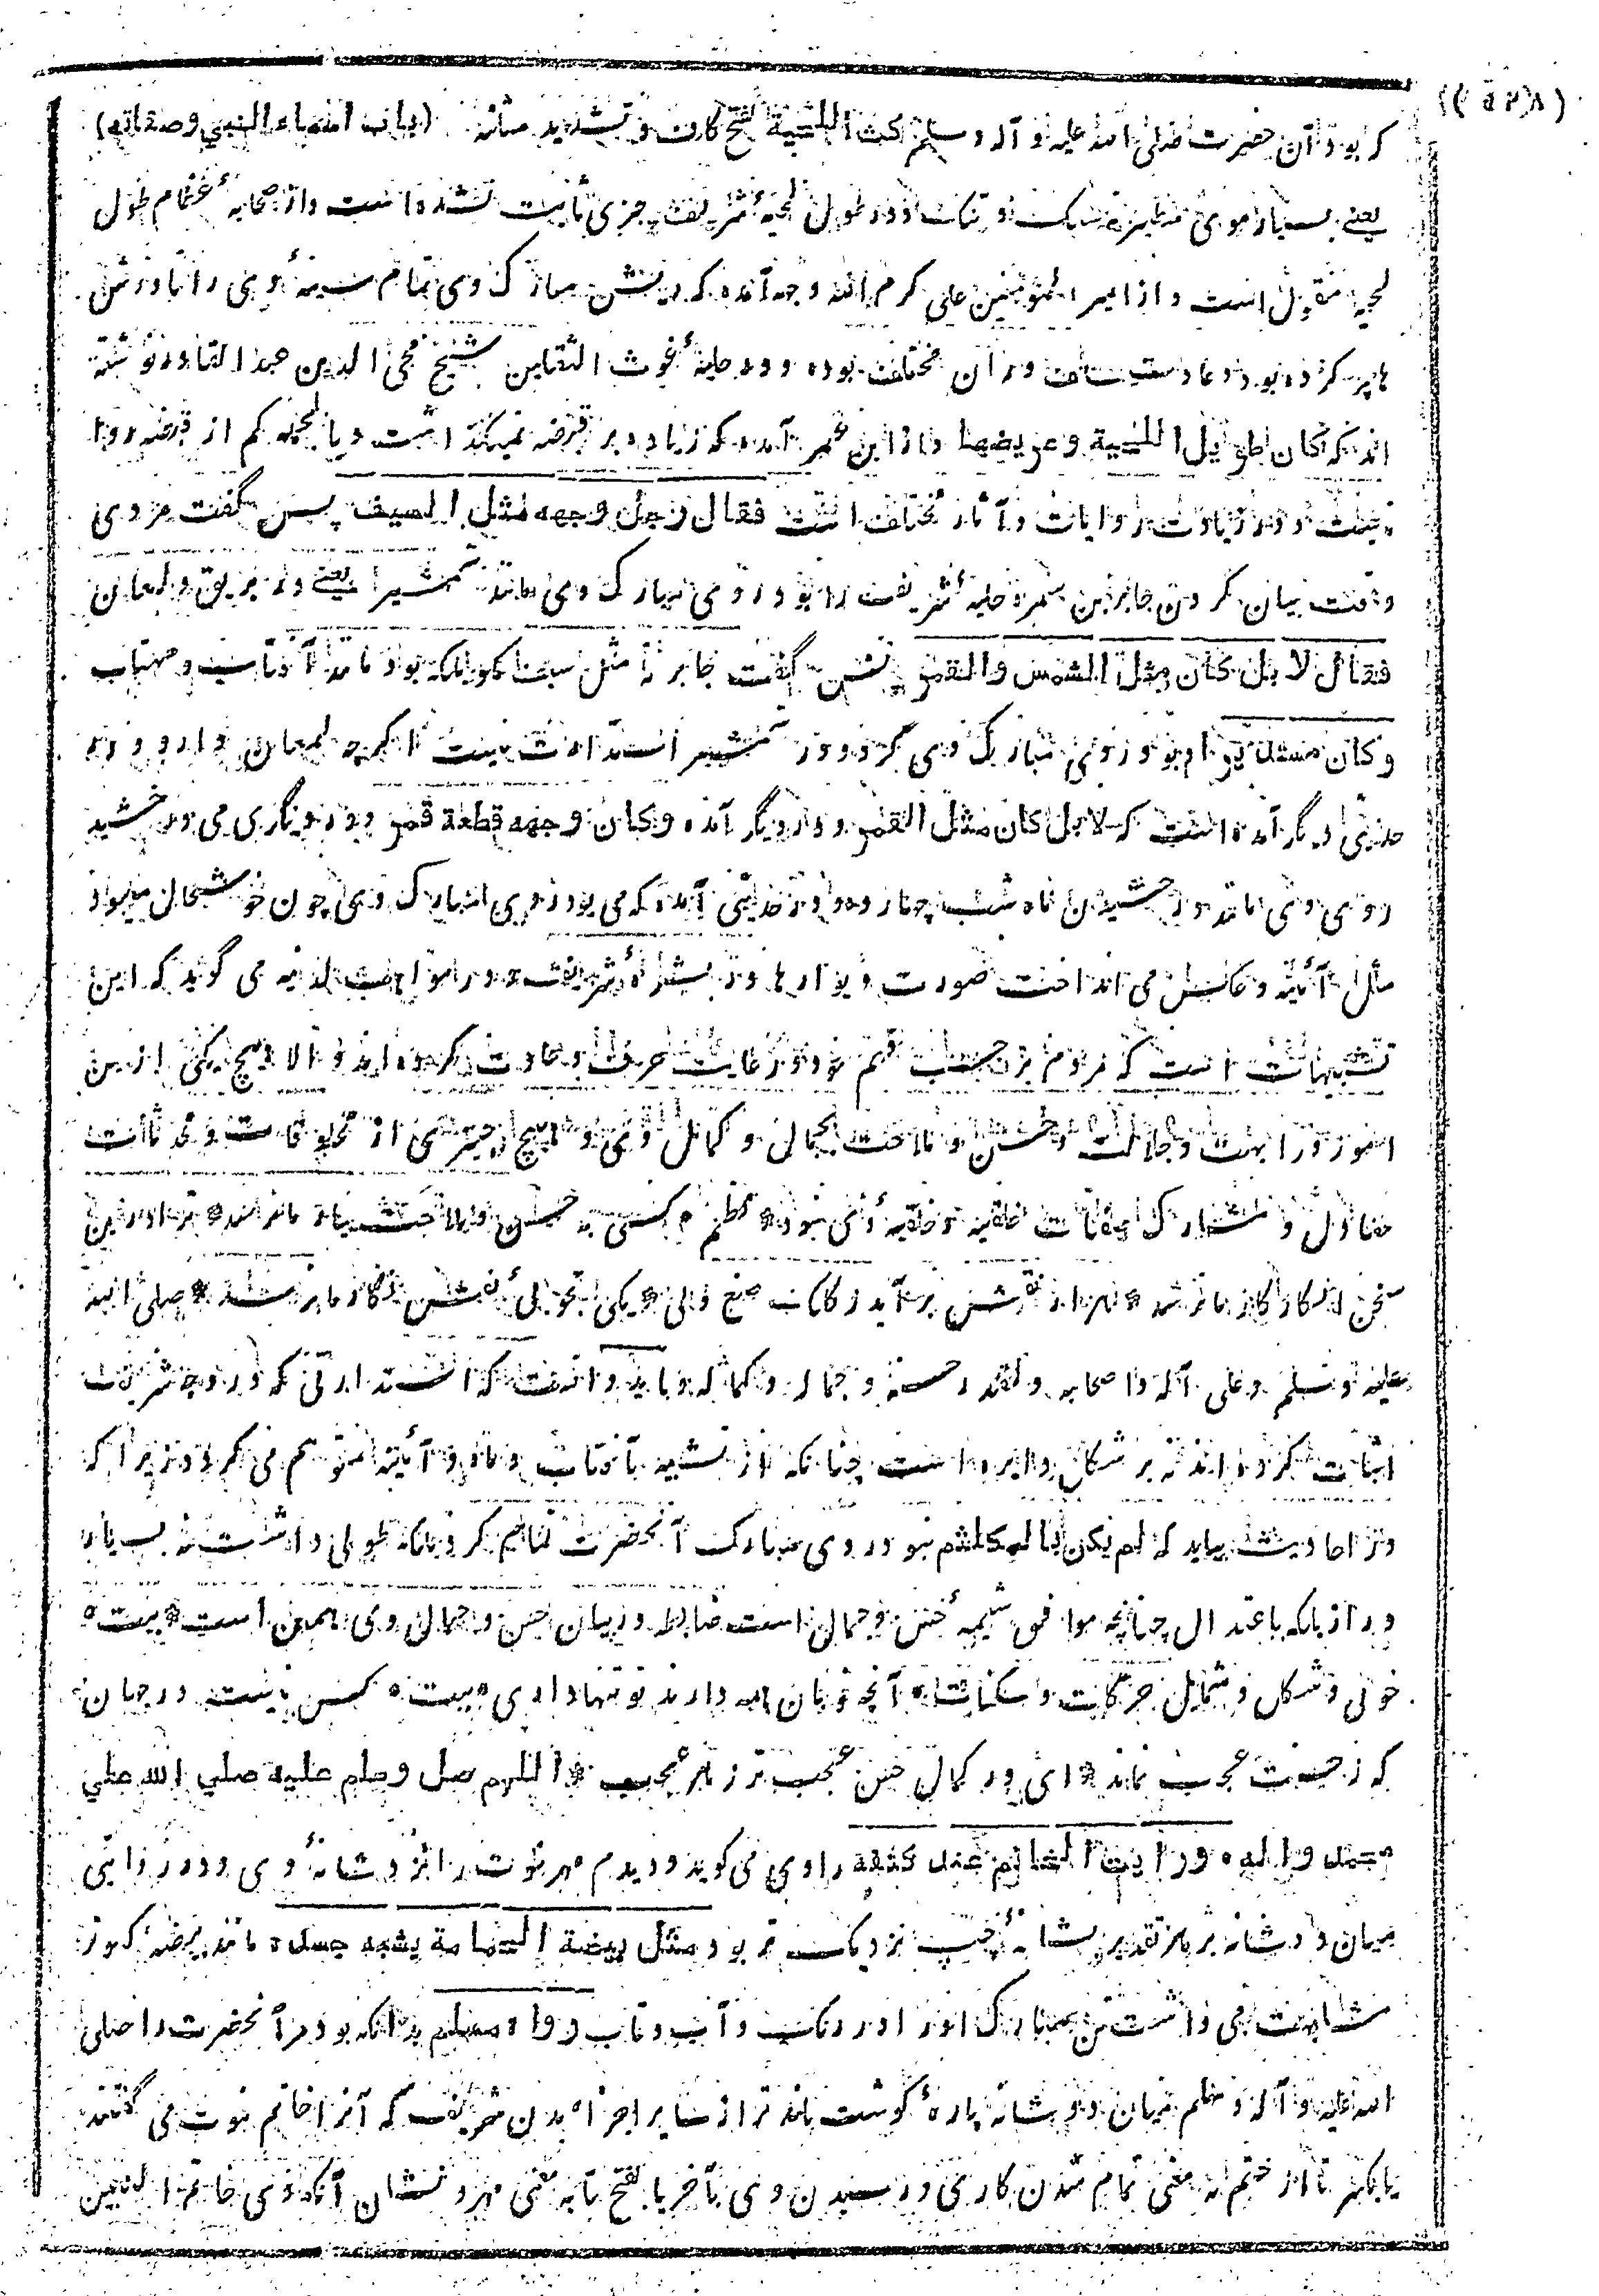 (۵۲۸)
که بود آن حضرت صلی الله علیه و آله وسلم کث اللحیة بفتح کاف و تشدید مثلثه (باب اسماء النبی وصفاته)
یعنے بسیار موی ریش در طول لحیهٔ شریف چیزی ثابت نشده است واز صحابهٔ عظام طول
لحیه منقول است و از امیر المؤمنین علی کرم الله وجهه آمده که ریش مبارک وی تمام سینهٔ وی را تا دوش
ها پر کرده بود و عادت سلف در آن مختلف بوده و در حلیهٔ غوث الثقلین شیخ محی الدین عبد القادر نوشته
اند که کان طویل اللحیة وعریضها و از ابن عمر آمده که زیاده بر قبضه نمیگذاشت و بالجمله کم از قبضه روا
نیست و در زیادت روایات و آثار مختلف است فقال رجل وجهه مثل السیف پس گفت مردی
وقت بیان کردن جابر بن سمره حلیهٔ شریف را بود روی مبارک وی مانند شمشیر یعنے در بریق و لمعان
فقال لا بل کان مثل الشمس والقمر پس گفت جابر نه مثل سیف مگو بلکه بود مانند آفتاب و مهتاب
وکان مستدیرا و بود روی مبارک وی گرد و در شمشیر استدارت نیست اگرچه لمعان دارد و در
حدیثی دیگر آمده است که لا بل کان مثل القمر و در دیگر آمده وکان وجهه قطعة قمر و در دیگری می درخشید
روی وی مانند درخشیدن ماه شب چهارده و در حدیثی آمده که می بود روی مبارک وی چون خوشحال میبود
مثل آئینه و عکس می انداخت صورت دیوارها در بشرهٔ شریف و در مواهب لدنیه می گوید که این
تشبیهات است که مردم بر حسب فهم خود و رعایت عرف و عادت کرده اند و الا هیچ یکی ازین
امور در ابهت و جلالت و حسن و ملاحت بجمال و کمال وی و هیچ چیزی از مخلوقات و محدثات
معادل و مشارک صفات خلقیه و خلقیهٔ وی نبود * نظم * کسی به حسن و ملاحت بیار ما نرسد * ترا درین
سخن انکار کار ما نرسد * هزار نقش برآید ز کلک صنع ولی * یکی بخوبی نقش نگار ما نرسد * صلی الله
علیه وسلم وعلی آله واصحابه وبقدر حسنه وجماله وکماله و باید دانست که استدارتی که در وجه شریف
اثبات کرده اند نه بر شکل دایره است چنانکه از تشبیه بآفتاب و ماه و آئینه متوهم می گردد زیرا که
در احادیث بیاید که لم یکن بالمکلثم نبود روی مبارک آنحضرت تمام گرد بلکه طولی داشت نه بسیار
دراز بلکه باعتدال چنانچه موافق شیمهٔ حسن و جمال است ضابطه در بیان حسن و جمال وی همین است * بیت *
خوبی و شکل و شمایل حرکات و سکنات * آنچه خوبان همه دارند تو تنها داری * بیت * کس نیست در جهان
که ز حسنت عجب نماند * ای در کمال حسن عجب تر ز هر عجیب * اللهم صل وسلم علیه صلی الله علی
محمد واله * ورایت الخاتم عند کتفه راوی می گوید و دیدم مهر نبوت را نزد شانهٔ وی و در روایتی
میان دو شانه بر هر تقدیر بشانهٔ چپ نزدیک تر بود مثل بیضة الحمامة یشبه جسده مانند بیضهٔ کبوتر
مشابهت می داشت تن مبارک او را در رنگ و آب و تاب رواه مسلم بدانکه بود مر آنحضرت را صلی
الله علیه و آله وسلم میان دو شانه پارهٔ گوشت بلند تر از سایر اجزاء بدن شریف که آنرا خاتم نبوت می گفتند
یا بکسر تا از ختم به معنی تمام شدن کاری و رسیدن وی بآخر یا بفتح تا به معنی مهر و نشان آنکه وی خاتم النبیین